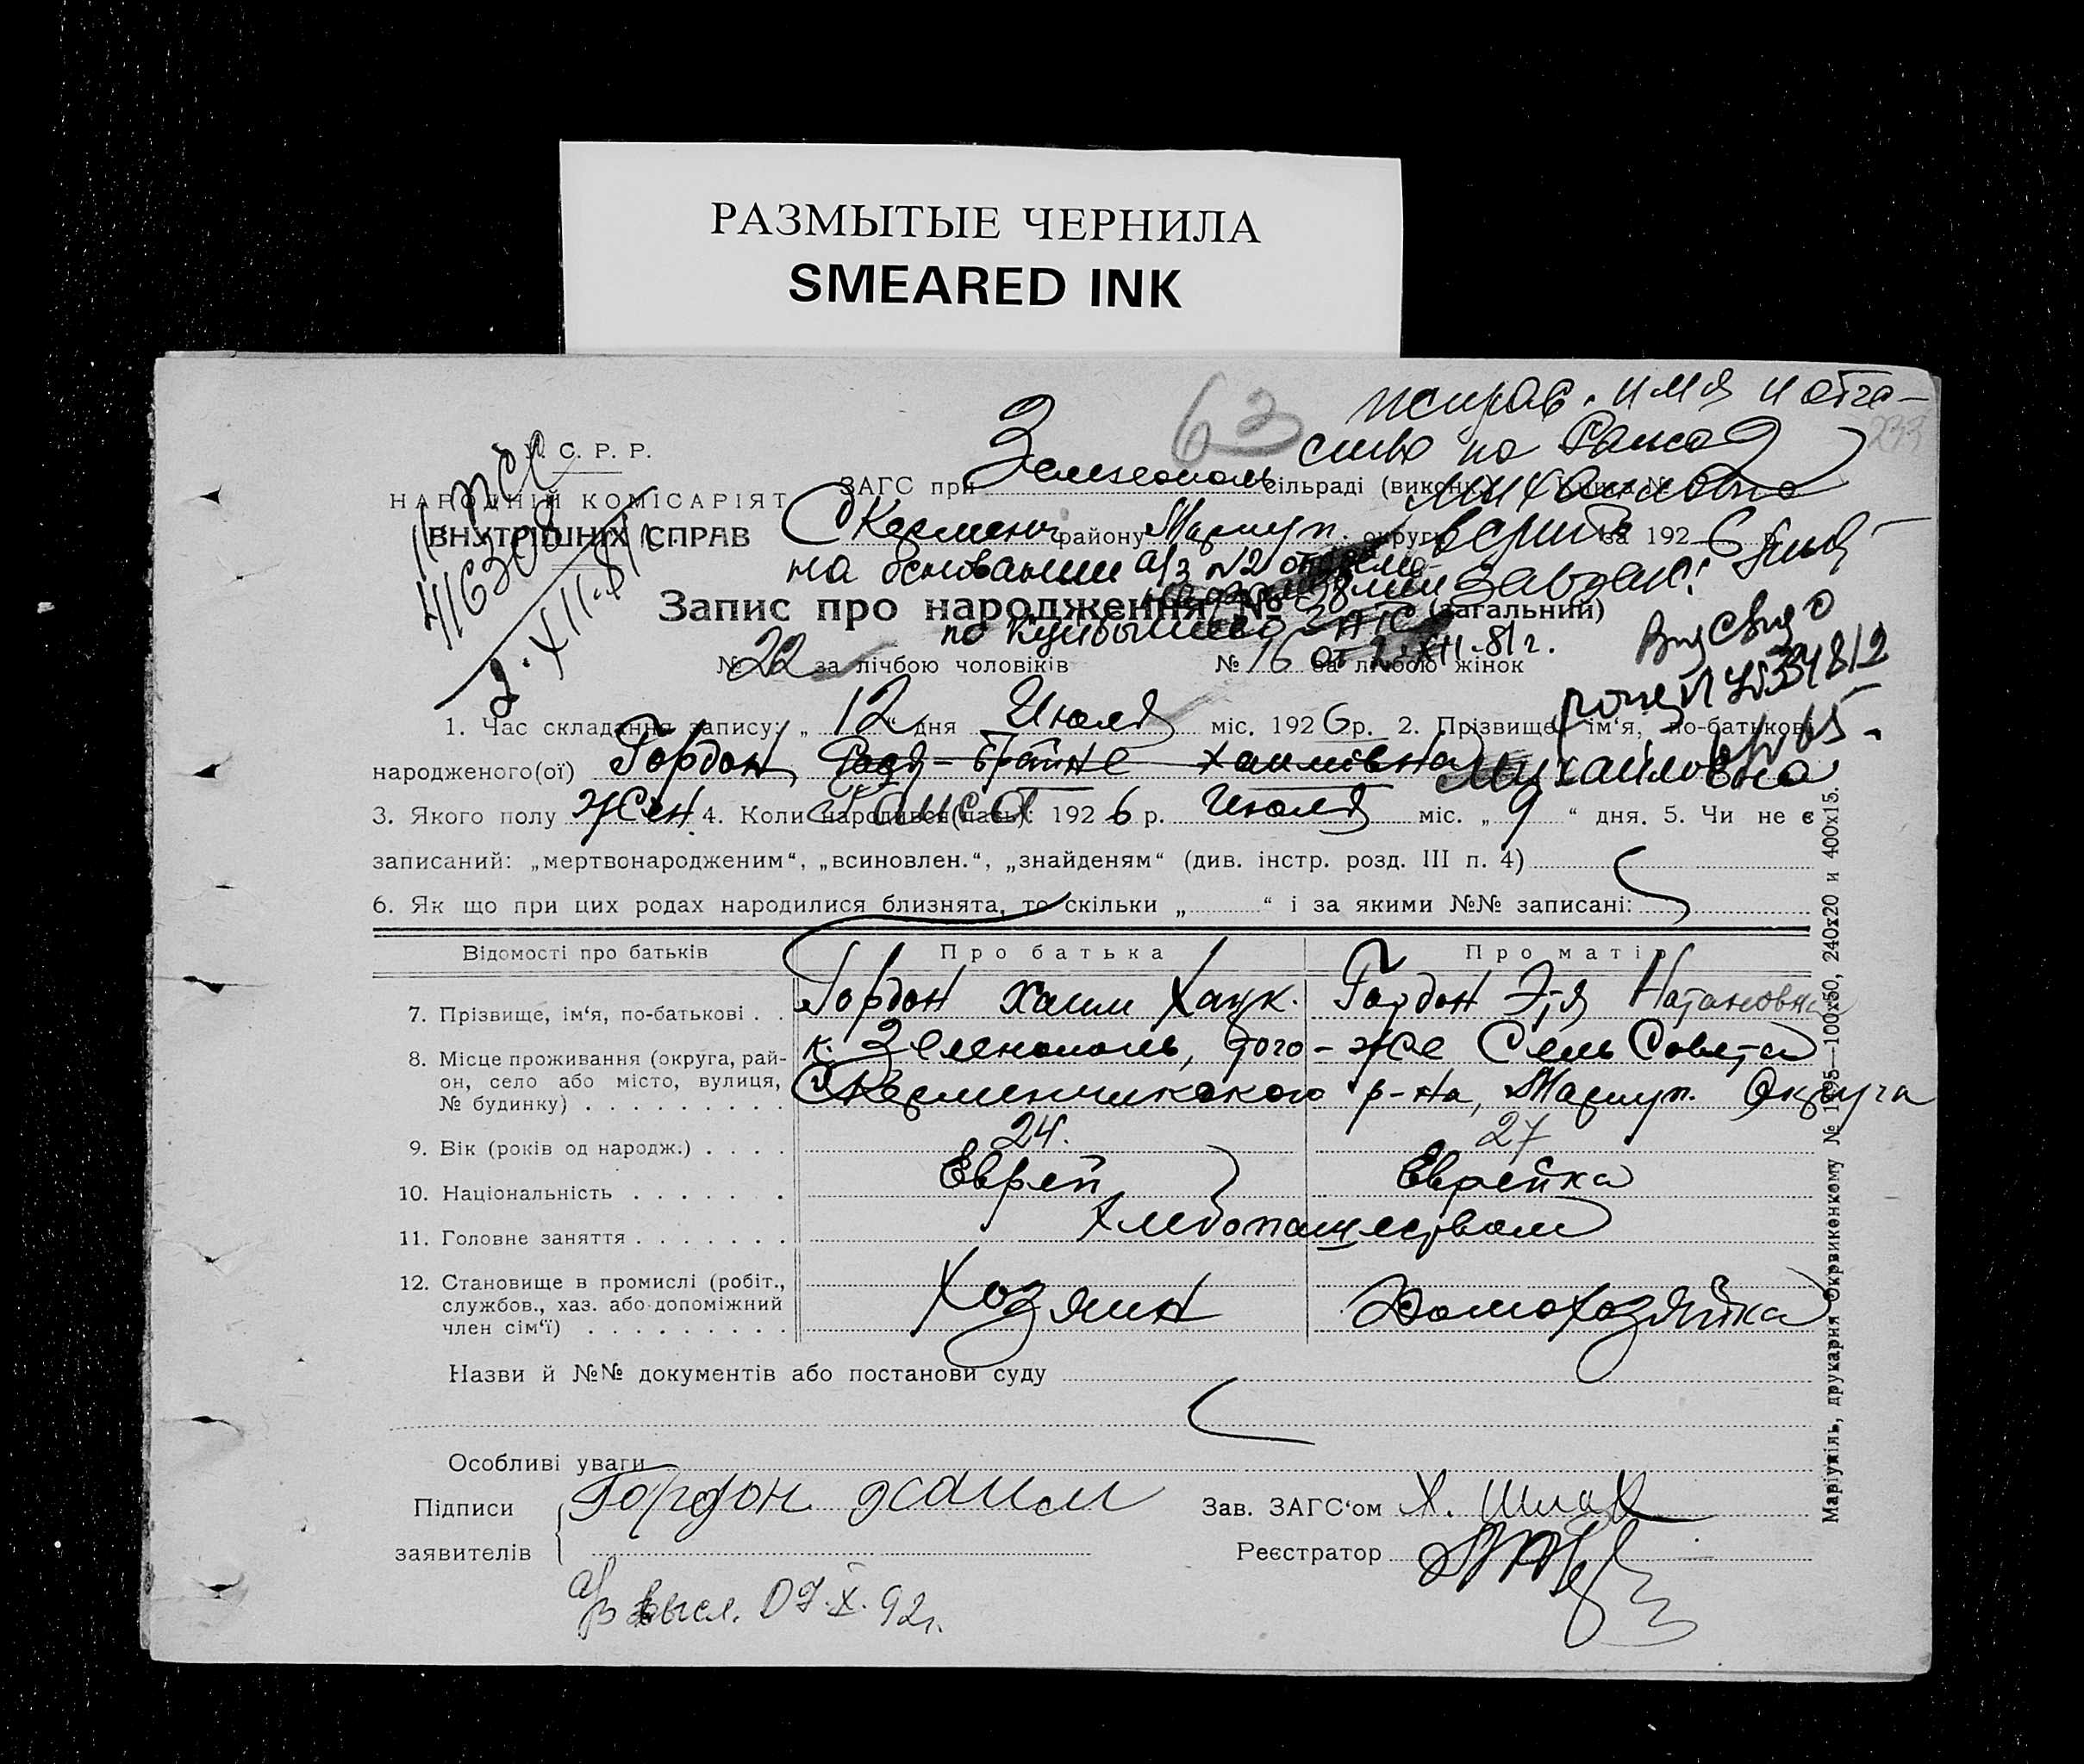 РАЗМЫТЫЕ ЧЕРНИЛА
SMEARED INK
63
исправ. имя и отче-
ство на Раиса
Михайловна
верить
У. С. Р. Р.
НАРОДНІЙ КОМІСАРІЯТ
ВНУТРІШНІХ СПРАВ
416308
2.XII.81г.
ЗАГС при Зеленополь сільраді (виконк.) Книга №
СКермени району Мариуп. округи за 1926 р.
на основании а/з №2 от
Запис про народження № 38 (загальний)
по Куйбышево ЗАГС
от 2.XII.81г.
№ 22 за лічбою чоловіків № 16 за лічбою жінок
1. Час складання запису: „ 12 “ дня Июля міс. 1926 р. 2. Прізвище, ім‘я, по-батькові
народженого(ої) Гордон Хаимовна Михайловна
Раиса
3. Якого полу Жен. 4. Коли народився(лась): 1926 р. Июля міс. „ 9 “ дня. 5. Чи не є
записаний: „мертвонародженим“, „всиновлен.“, „знайденям“ (див. інстр. розд. III п. 4)
6. Як що при цих родах народилися близнята, то скільки „ “ і за якими №№ записані:
Відомості про батьків Про батька Про матір
7. Прізвище, ім‘я, по-батькові . . Гордон Хаим Хацк. Гордон Этя Натановна
8. Місце проживання (округа, рай-
он, село або місто, вулиця,
№ будинку) . . . . . . . . .
к. Зеленополь, того-же СельСовета
СКерменчикского р-на, Мариуп. Округа
9. Вік (років од народж.) . . . . 24. 27
10. Національність . . . . . . . Еврей Еврейка
11. Головне заняття . . . . . . . Хлебопашеством
12. Становище в промислі (робіт.,
службов., хаз. або допоміжний
член сім‘ї) . . . . . . . . .
Хозяин Домохозяйка
Назви й №№ документів або постанови суду
Особливі уваги
Підписи
заявителів
Гордон Хаим
Зав. ЗАГС‘ом Х. Шлах
Реєстратор
а/з высл. 07.X.92г.
Маріупіль, друкарня Окрвиконкому № 1695—100х50, 240х20 и 400х15.